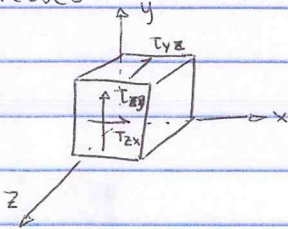 y
τyz
τzy
τzx
x
z